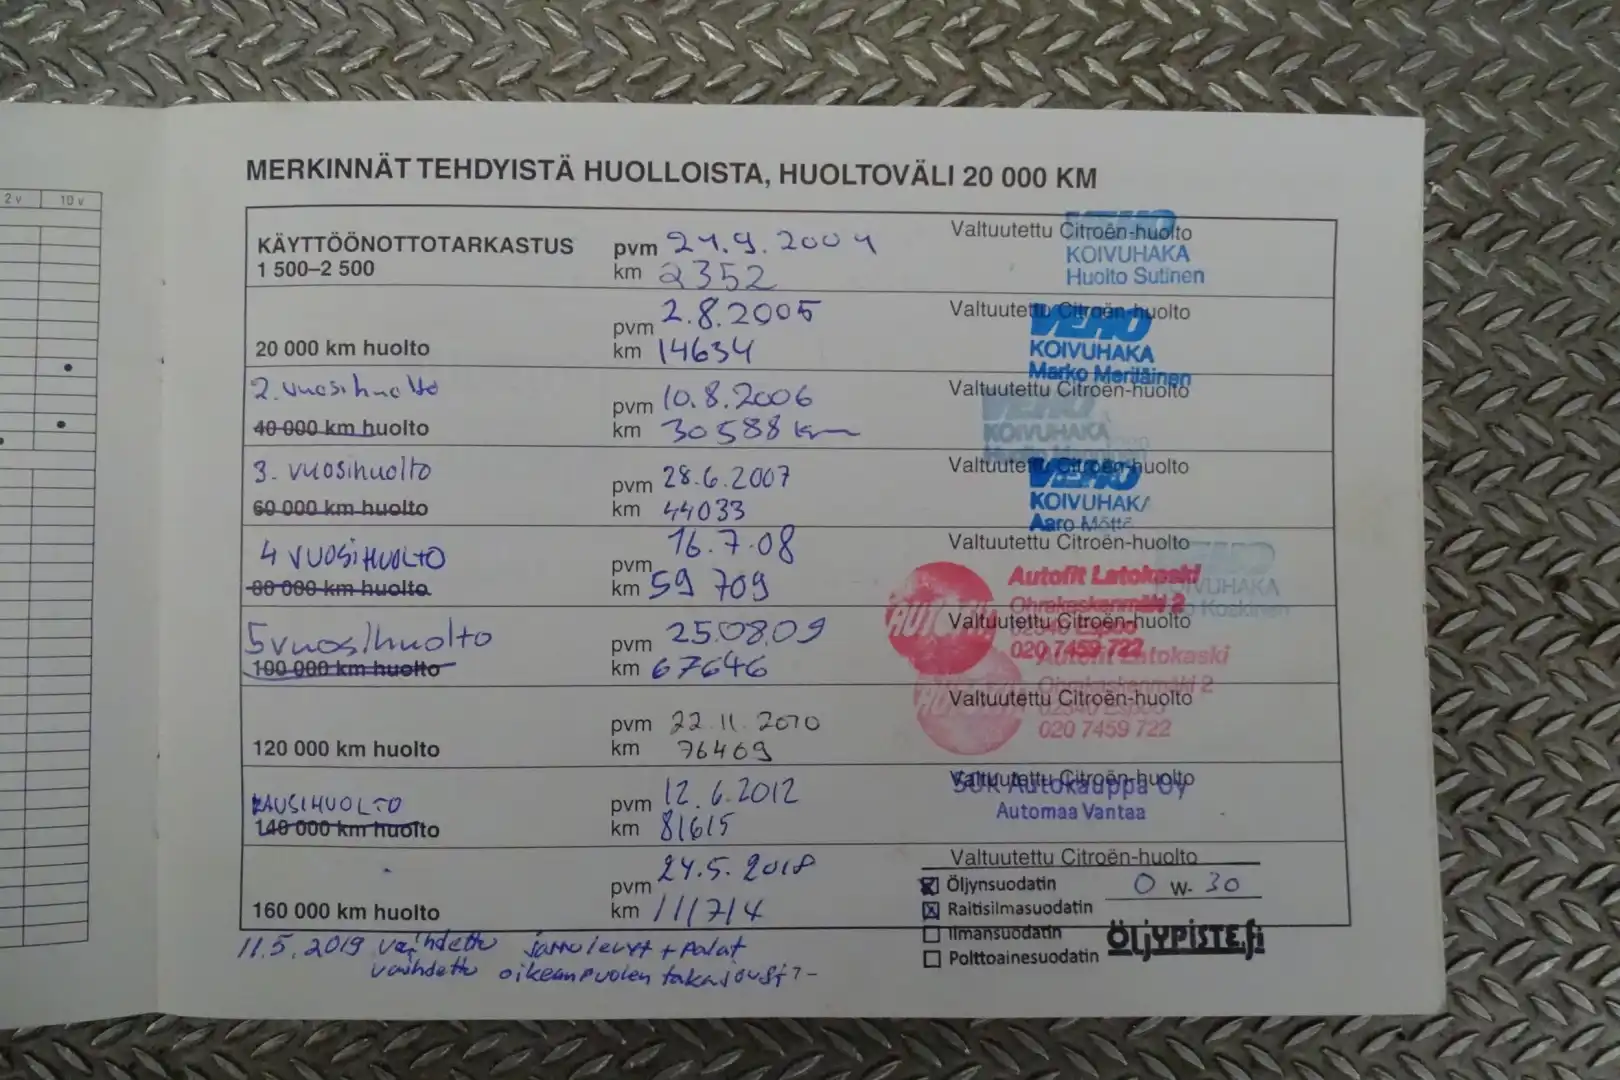 2 v 10 v
MERKINNÄT TEHDYISTÄ HUOLLOISTA, HUOLTOVÄLI 20 000 KM
KÄYTTÖÖNOTTOTARKASTUS pvm 24.9.2004 Valtuutettu Citroën-huolto
1 500–2 500 km 2352
VEHO
KOIVUHAKA
Huolto Sutinen
pvm 2.8.2005 Valtuutettu Citroën-huolto
20 000 km huolto km 14634
VEHO
KOIVUHAKA
Marko Meriläinen
2. vuosihuolto pvm 10.8.2006 Valtuutettu Citroën-huolto
40 000 km huolto km 30588 km
VEHO
KOIVUHAKA
3. vuosihuolto pvm 28.6.2007 Valtuutettu Citroën-huolto
60 000 km huolto km 44033
VEHO
KOIVUHAKA
Aaro
4 VUOSIHUOLTO pvm 16.7.08 Valtuutettu Citroën-huolto
80 000 km huolto km 59 709
VEHO
KOIVUHAKA
Koskinen
5 vuosihuolto pvm 25.08.09 Valtuutettu Citroën-huolto
100 000 km huolto km 67646
Autofit Latokaski
Ohrakaskenmäki 2
02340 Espoo
020 7459 722
pvm 22.11.2010 Valtuutettu Citroën-huolto
120 000 km huolto km 76469
Autofit Latokaski
Ohrakaskenmäki 2
02340 Espoo
020 7459 722
KAUSIHUOLTO pvm 12.6.2012 Valtuutettu Citroën-huolto
140 000 km huolto km 81615
SOK Autokauppa Oy
Automaa Vantaa
pvm 24.5.2018 Valtuutettu Citroën-huolto
160 000 km huolto km 111714
Öljynsuodatin 0 W- 30
Raitisilmasuodatin
Ilmansuodatin
Polttoainesuodatin
ÖLJYPISTE.fi
11.5.2019 vaihdettu jarrulevyt + palat
vaihdettu oikeanpuolen takajousi